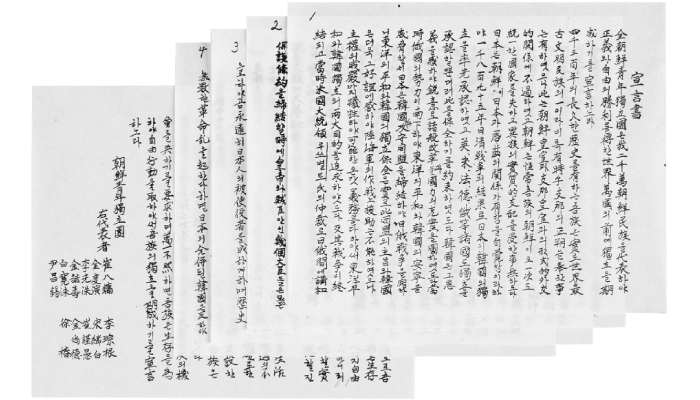 宣言書
全朝鮮青年獨立團은我二千萬朝鮮民族을代表하야
正義와自由의勝利를得한世界萬國의前에獨立을期
成하기를宣言하노라
四千三百年의長久한歷史를有하는吾族은實로世界最
古文明民族의一이라비록有時乎支那의正朔을奉한事
는有하엿으나此는朝鮮皇室과支那皇室과의形式的外交
的關係에不過하엿고朝鮮은恒常吾族의朝鮮이오一次도
統一한國家를失하고異族의實質的支配를受한事無하도다
日本은朝鮮이日本과唇齒의關係가有함을自覺함이라하
야一千八百九十五年日淸戰爭의結果로日本이韓國의獨
立을率先承認하엿고英、米、法、德、俄等諸國도獨立을
承認할뿐더러此를保全하기를約束하엿도다韓國은그恩
義를感하야銳意로諸般改革과國力의充實을圖하엿도다當
時俄國의勢力이南下하야東洋의平和와韓國의安寧을
威脅할새日本은韓國과攻守同盟을締結하야日俄戰爭을開하
니東洋의平和와韓國의獨立保全은實로此同盟의主旨라韓國
은더욱그好誼에感하야陸海軍의作戰上援助는不能하엿으나
主權의威嚴까지犧牲하야可能한온갓義務를다하야써東洋平
和와韓國獨立의兩大目的을追求하얏도다及其戰爭이終
結되고當時米國大統領루쓰벨트氏의仲裁로日俄間에講和
1
2
保護條約을締結할時에皇帝와賊臣안인幾個大臣
3
永遠히日本人의被使役者를成하게하며歷史
4
無數한革命亂을起하
日本의合併된韓國은
會를與하기를要求하며萬一不然하면吾族은生存을爲
하야自由行動을取하야써吾族의獨立을期成하기를宣言
하노라
朝鮮靑年獨立團
右代表者
崔八鏞 李琮根
金度演 宋繼白
李光洙 崔謹愚
金喆壽 金尙德
白寬洙 徐椿
尹昌錫